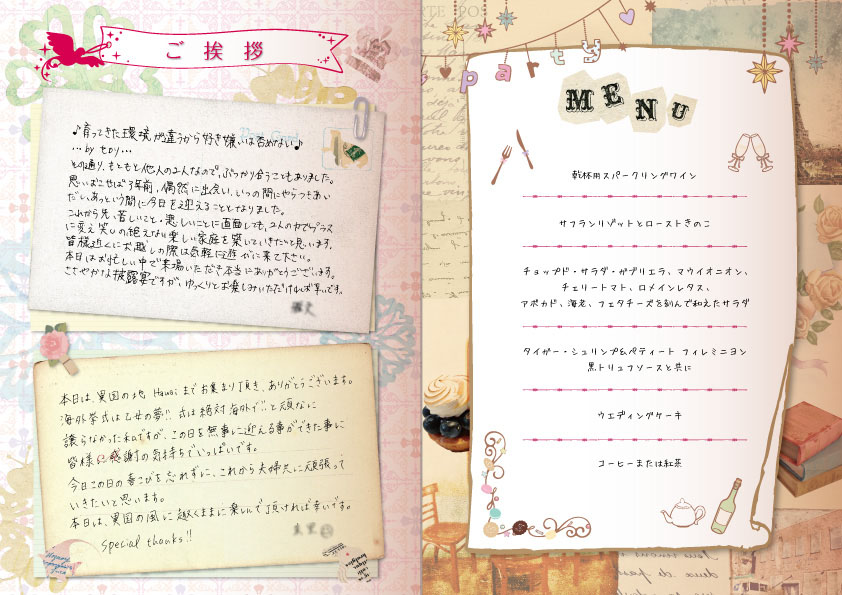 ご挨拶
♪育ってきた環境が違うから好き嫌いは否めない♪
…by セロリ…
その通り、もともと他人の2人なので、ぶつかり合うこともありました。
思いおこせば3年前、偶然に出会い、いつの間にやらつきあい
だし、あっという間に今日を迎えることとなりました。
これから先、苦しいこと・悲しいことに直面しても、2人の力でプラス
に変え笑いの絶えない楽しい家庭を築いていきたいと思います。
皆様近くにお越しの際は気軽に遊びに来て下さい。
本日はお忙しい中ご来場いただき本当にありがとうございます。
ささやかな披露宴ですが、ゆっくりとお楽しみいただければ幸いです。
本日は、異国の地 Hawaiまでお集まり頂き、ありがとうございます。
海外挙式は乙女の夢!! 式は絶対海外で!!と頑なに
譲らなかった私ですが、この日を無事に迎える事ができた事に
皆様に感謝の気持ちでいっぱいです。
今日この日の喜びを忘れずに、これから夫婦共に頑張って
いきたいと思います。
本日は、異国の風に趣くままに楽しんで頂ければ幸いです。
Special thanks!!
party
MENU
乾杯用スパークリングワイン
サフランリゾットとローストきのこ
チョップド・サラダ・ガブリエラ、マウイオニオン、
チェリートマト、ロメインレタス、
アボカド、海老、フェタチーズを刻んで和えたサラダ
タイガー・シュリンプ&ペティート フィレミニヨン
黒トリュフソースと共に
ウエディングケーキ
コーヒーまたは紅茶